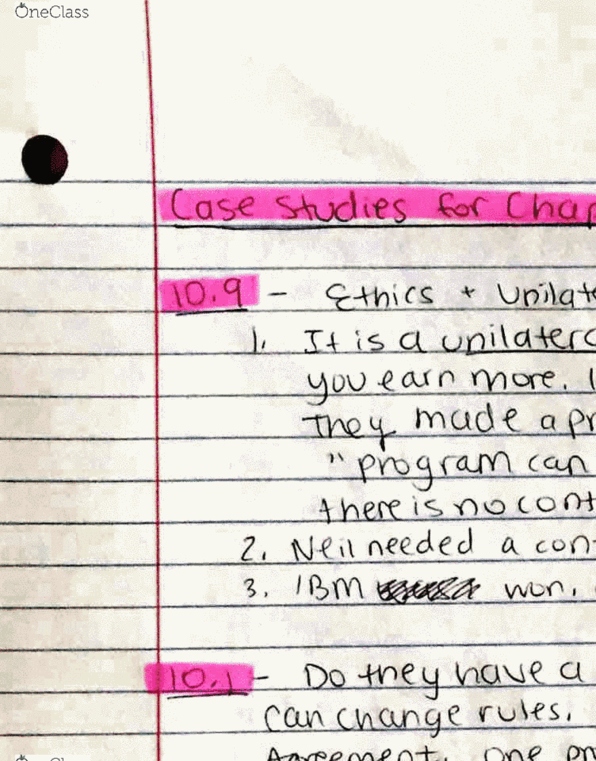 OneClass
Case Studies for Chap
10.9 - Ethics + Unilate
1. It is a unilatera
you earn more. I
they made a pr
" program can
there is no cont
2. Neil needed a con
3. IBM won.
10.1 - Do they have a
can change rules.
Agreement. One pr